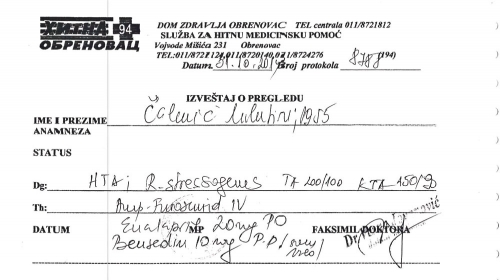 ХИТНА 94
ОБРЕНОВАЦ
DOM ZDRAVLJA OBRENOVAC TEL centrala 011/8721812
SLUŽBA ZA HITNU MEDICINSKU POMOĆ
Vojvode Mišića 231 Obrenovac
TEL:011/8721124,011/8720140,011/8724276 (194)
Datum Broj protokola 8788
IZVEŠTAJ O PREGLEDU
IME I PREZIME 1955
ANAMNEZA
STATUS
Dg: HTA; R. stressogenes TA 200/100 KTA 150/90
Th: Amp. Furosemid IV
DATUM Enalapril 20mg PO MP FAKSIMIL DOKTORA
Bensedin 10 mg P.P.
Dr